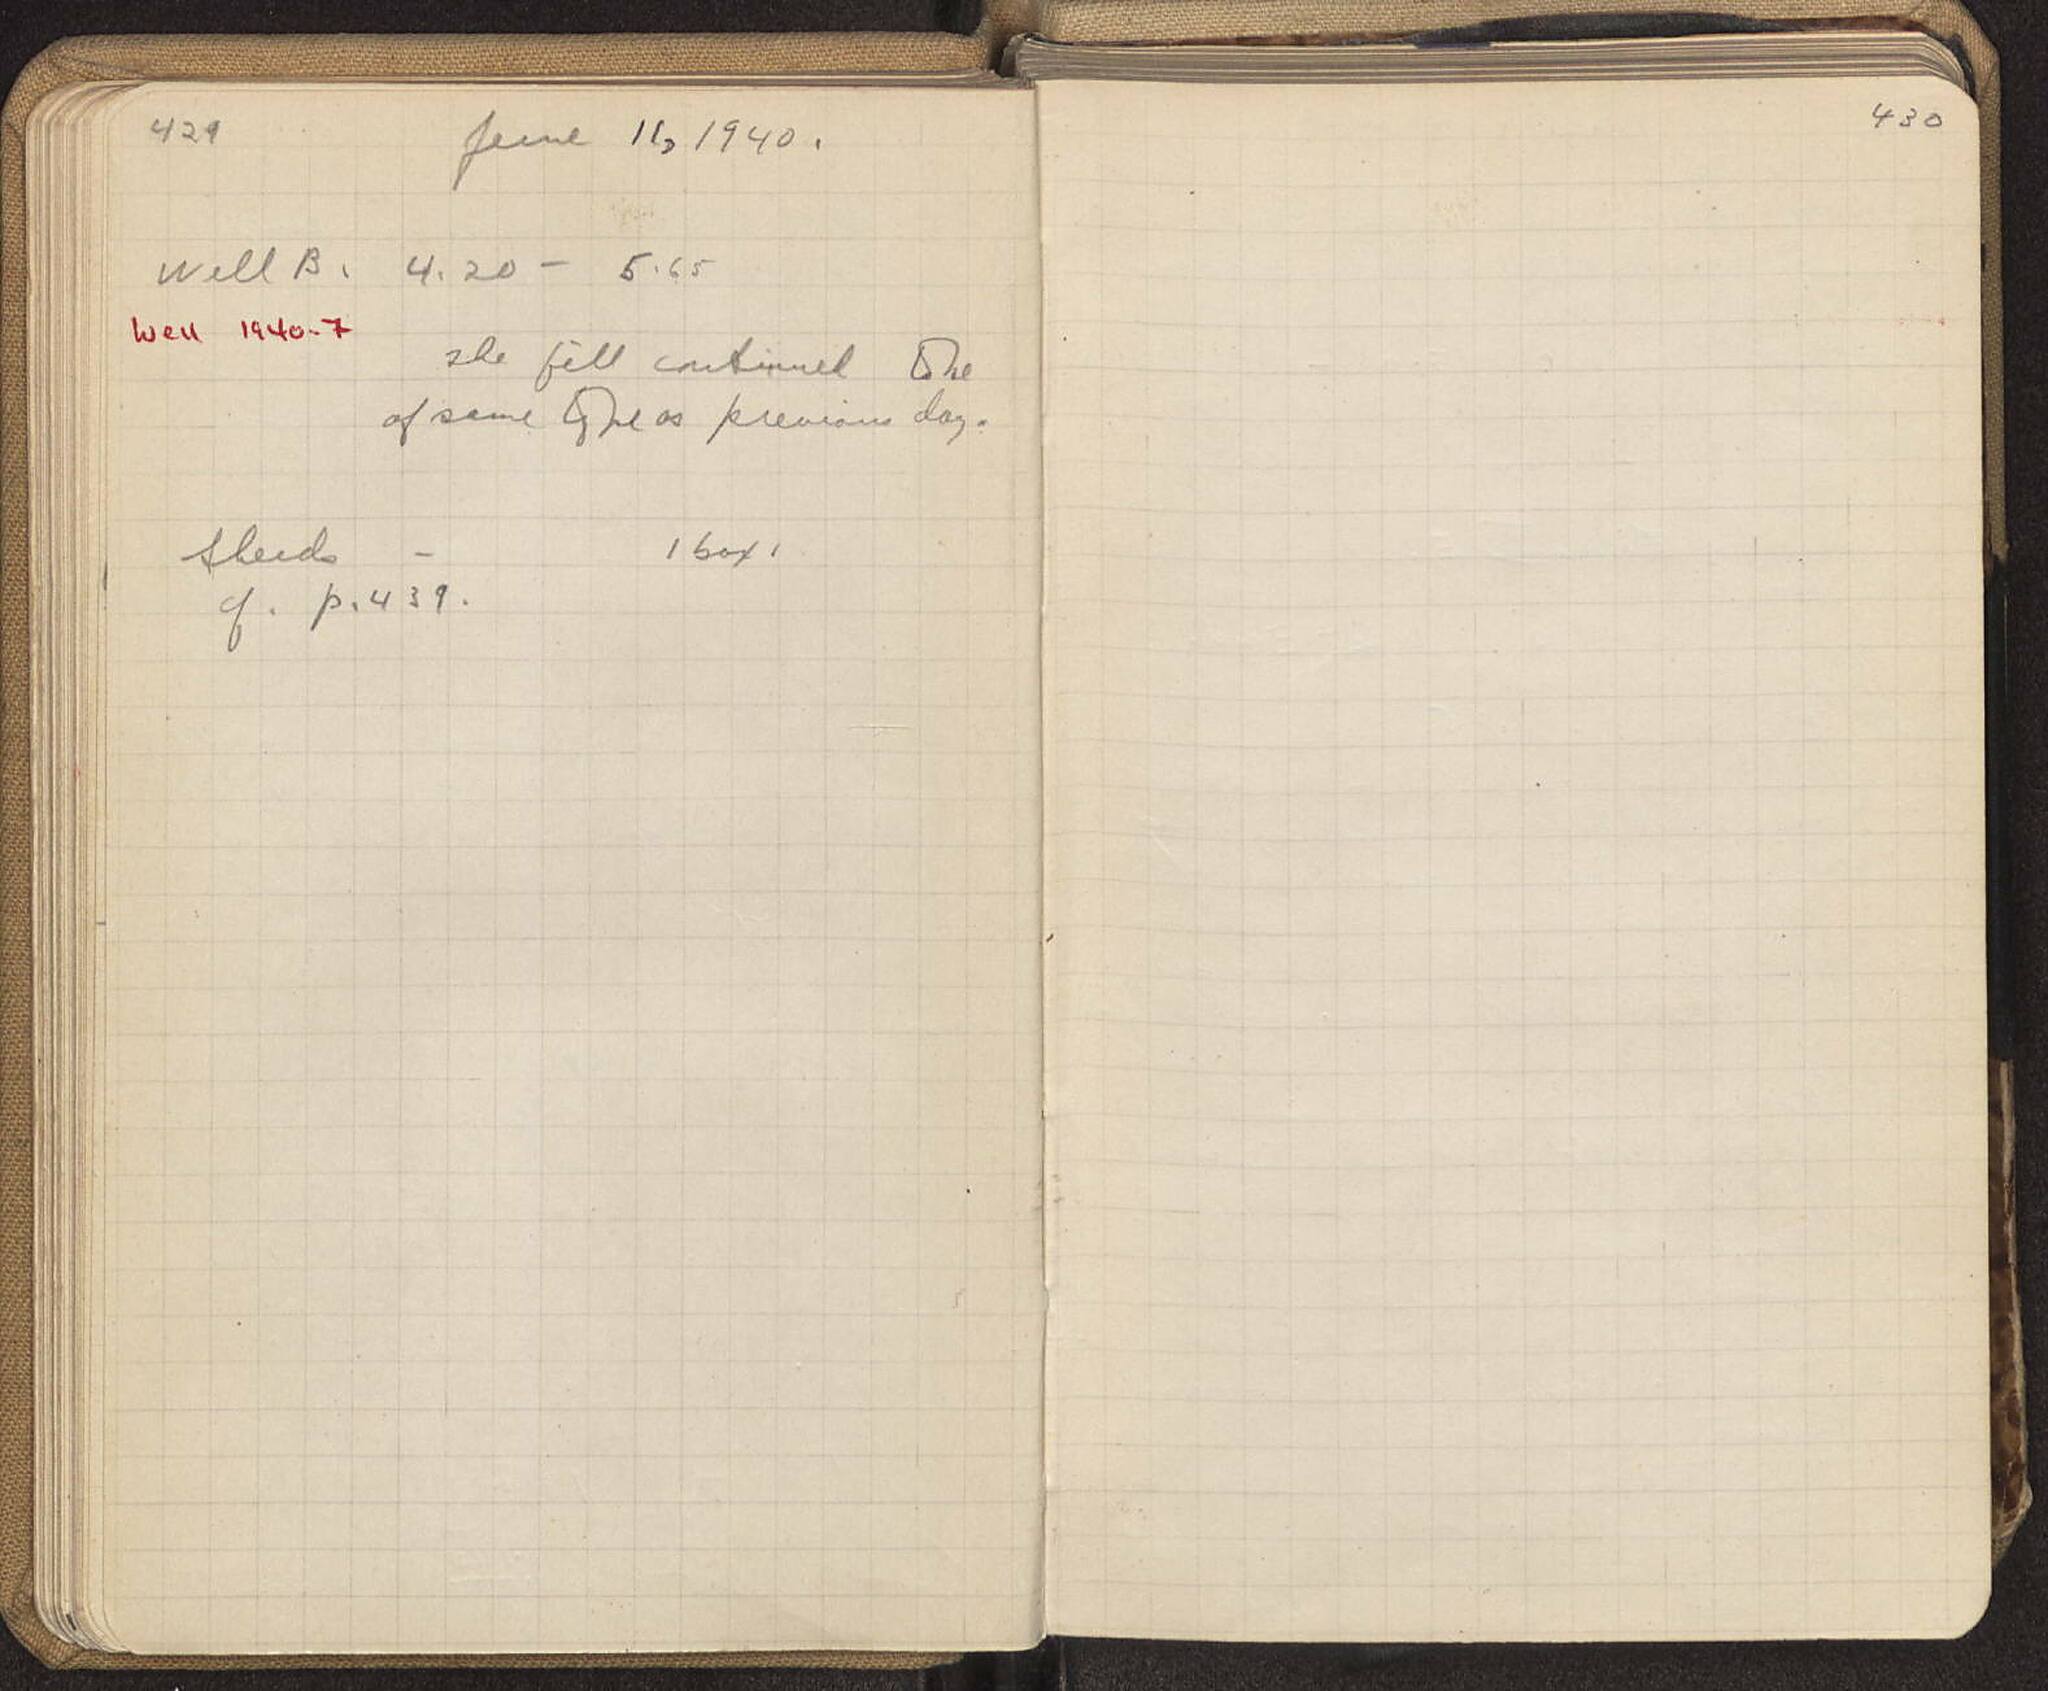 429
June 11, 1940.
Well B. 4.20 - 5.65
Well 1940-7
The fill continued to be
of same type as previous day.
Sherds - 1 box.
cf. p. 439.
430